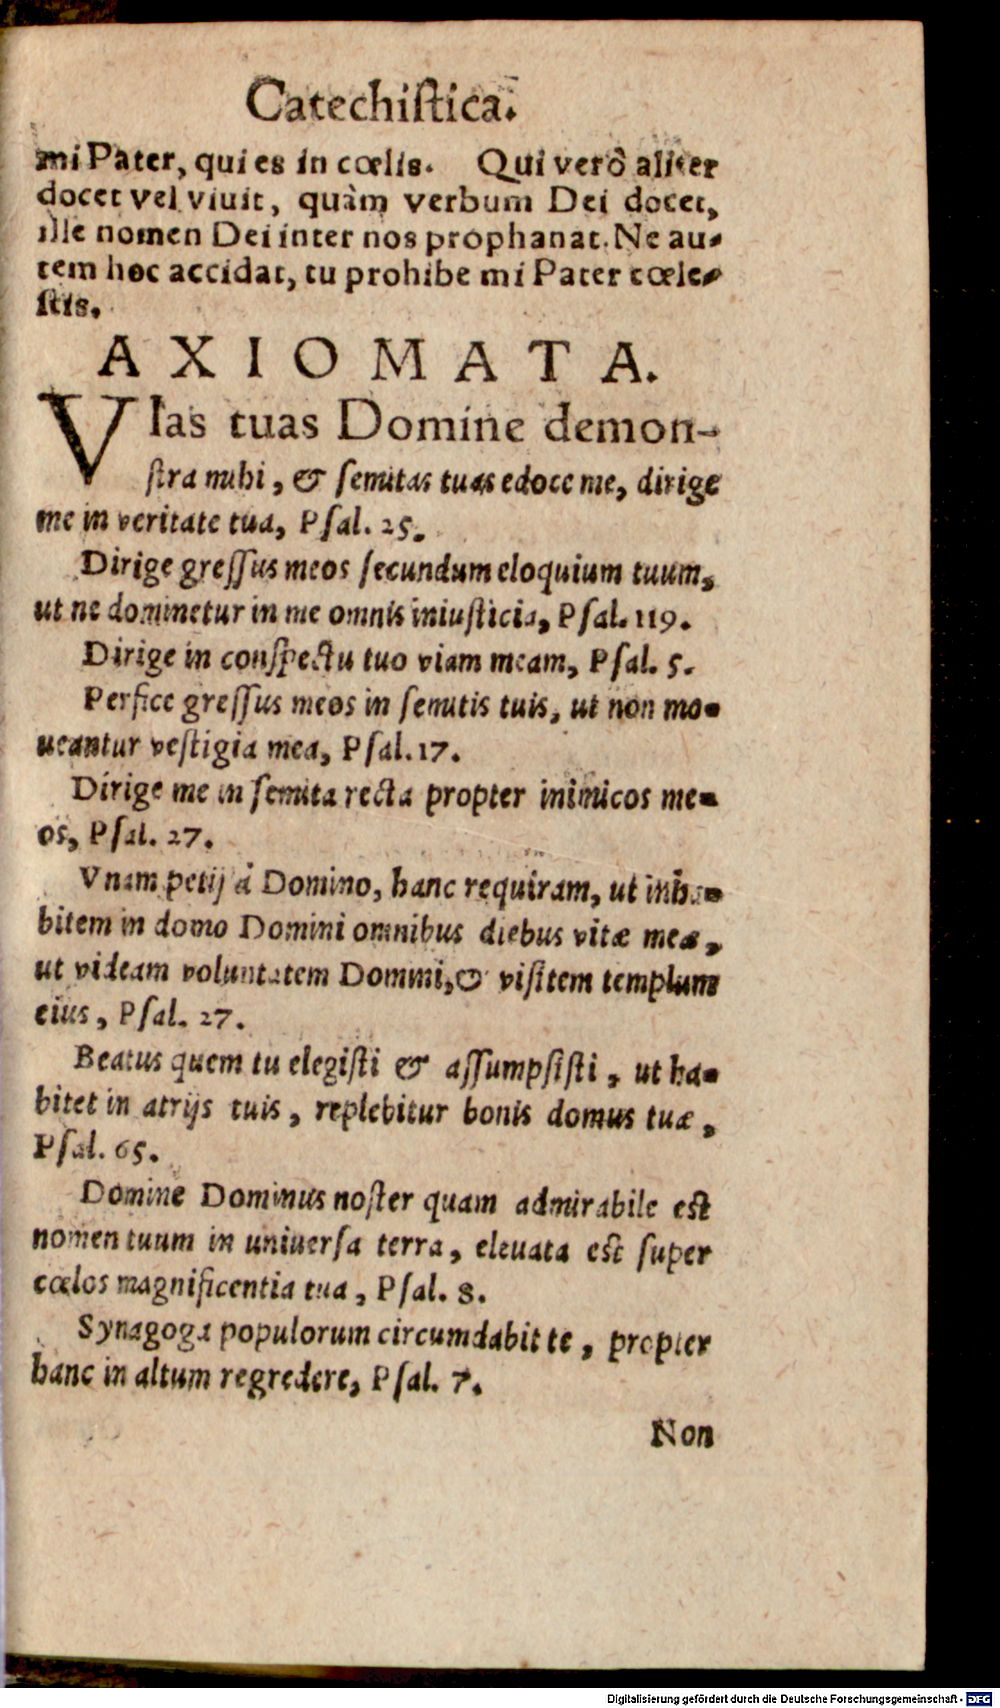 Catechiſtica.
mi Pater, qui es in cœlis. Qui verò aliter
docet vel viuit, quàm verbum Dei docet,
ille nomen Dei inter nos prophanat. Ne au-
tem hoc accidat, tu prohibe mi Pater cœle-
ſtis.
AXIOMATA.
VIas tuas Domine demon-
ſtra mihi, & ſemitas tuas edoce me, dirige
me in veritate tua, Pſal. 25.
Dirige greſſus meos ſecundum eloquium tuum,
ut ne dominetur in me omnis iniuſticia, Pſal. 119.
Dirige in conſpectu tuo viam meam, Pſal. 5.
Perfice greſſus meos in ſemitis tuis, ut non mo-
ueantur veſtigia mea, Pſal. 17.
Dirige me in ſemita recta propter inimicos me-
os, Pſal. 27.
Vnam petij à Domino, hanc requiram, ut inha-
bitem in domo Domini omnibus diebus vitæ meæ,
ut videam voluntatem Domini, & viſitem templum
eius, Pſal. 27.
Beatus quem tu elegiſti & aſſumpſiſti, ut ha-
bitet in atrijs tuis, replebitur bonis domus tuæ,
Pſal. 65.
Domine Dominus noſter quam admirabile eſt
nomen tuum in uniuerſa terra, eleuata eſt ſuper
cœlos magnificentia tua, Pſal. 8.
Synagoga populorum circumdabit te, propter
hanc in altum regredere, Pſal. 7.
Non
Digitalisierung gefördert durch die Deutsche Forschungsgemeinschaft - DFG